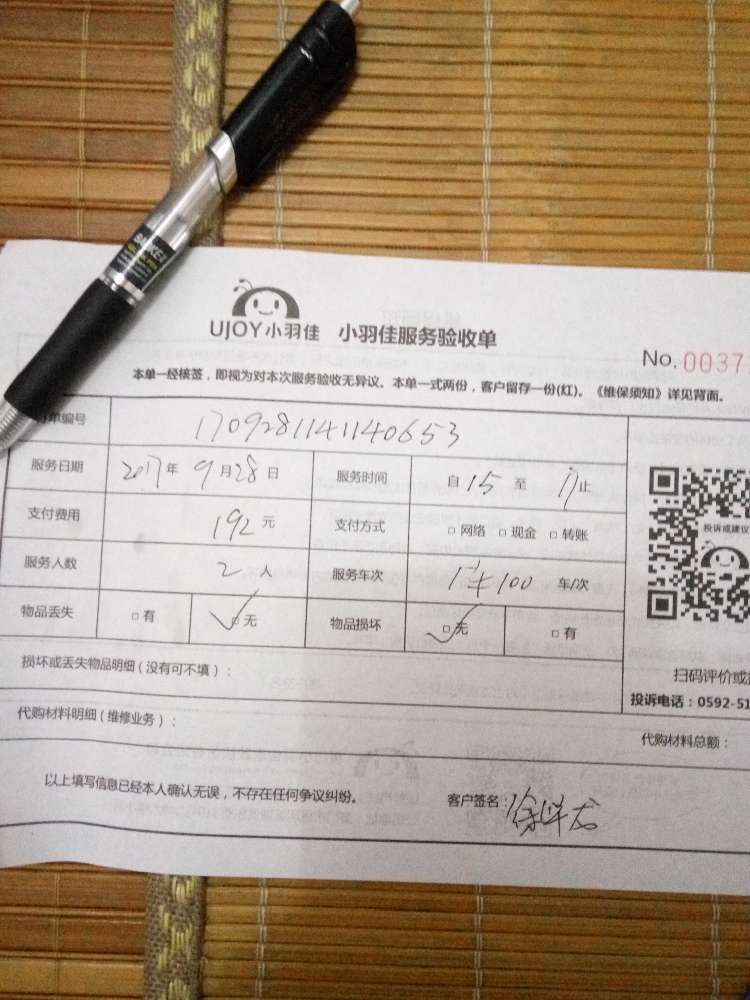 UJOY小羽佳 小羽佳服务验收单
No.0037
本单一经核签,即视为对本次服务验收无异议。本单一式两份,客户留存一份(红)。《维保须知》详见背面。
单编号 1709281141140653
服务日期 2017年9月28日 服务时间 自15至17止
支付费用 192元 支付方式 □网络 □现金 □转账
服务人数 2人 服务车次 车/次
物品丢失 □有 □无 物品损坏 □无 □有
投诉或建议
损坏或丢失物品明细(没有可不填):
扫码评价或
投诉电话:0592-51
代购材料明细(维修业务):
代购材料总额:
以上填写信息已经本人确认无误,不存在任何争议纠纷。
客户签名: